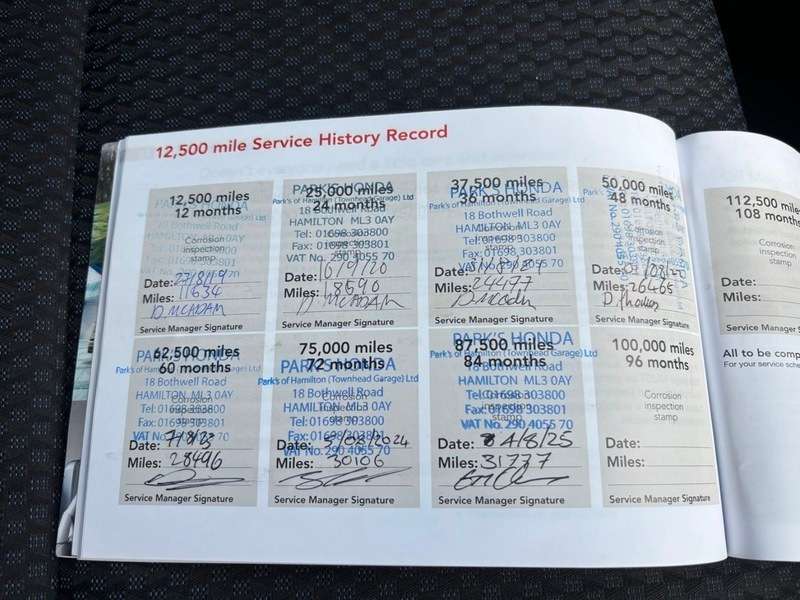 12,500 mile Service History Record
12,500 miles
12 months
Corrosion
inspection
stamp
Date: 27/8/19
Miles: 11634
D. MCADAM
Service Manager Signature
25,000 miles
24 months
PARK'S HONDA
Park's of Hamilton (Townhead Garage) Ltd
18 Bothwell Road
HAMILTON ML3 0AY
Tel: 01698 303800
Fax: 01698 303801
VAT No. 290 4055 70
Date: 16/9/20
Miles: 18590
D. MCADAM
Service Manager Signature
37,500 miles
36 months
PARK'S HONDA
Park's of Hamilton (Townhead Garage) Ltd
18 Bothwell Road
HAMILTON ML3 0AY
Tel: 01698 303800
Fax: 01698 303801
VAT No. 290 4055 70
Date:
Miles: 24477
Service Manager Signature
50,000 miles
48 months
Date:
Miles: 26465
D. Thomas
Service Manager Signature
62,500 miles
60 months
PARK'S HONDA
Park's of Hamilton (Townhead Garage) Ltd
18 Bothwell Road
HAMILTON ML3 0AY
Tel: 01698 303800
Fax: 01698 303801
VAT No. 290 4055 70
Date: 7/8/23
Miles: 28496
Service Manager Signature
75,000 miles
72 months
PARK'S HONDA
Park's of Hamilton (Townhead Garage) Ltd
18 Bothwell Road
HAMILTON ML3 0AY
Tel: 01698 303800
Fax: 01698 303801
VAT No. 290 4055 70
Date: 5/08/2024
Miles: 30106
Service Manager Signature
87,500 miles
84 months
PARK'S HONDA
Park's of Hamilton (Townhead Garage) Ltd
18 Bothwell Road
HAMILTON ML3 0AY
Tel: 01698 303800
Fax: 01698 303801
VAT No. 290 4055 70
Date: 4/8/25
Miles: 31777
Service Manager Signature
100,000 miles
96 months
Corrosion
inspection
stamp
Date:
Miles:
Service Manager Signature
112,500 miles
108 months
Corrosion
inspection
stamp
Date:
Miles:
Service Manager S
All to be comp
For your service sche